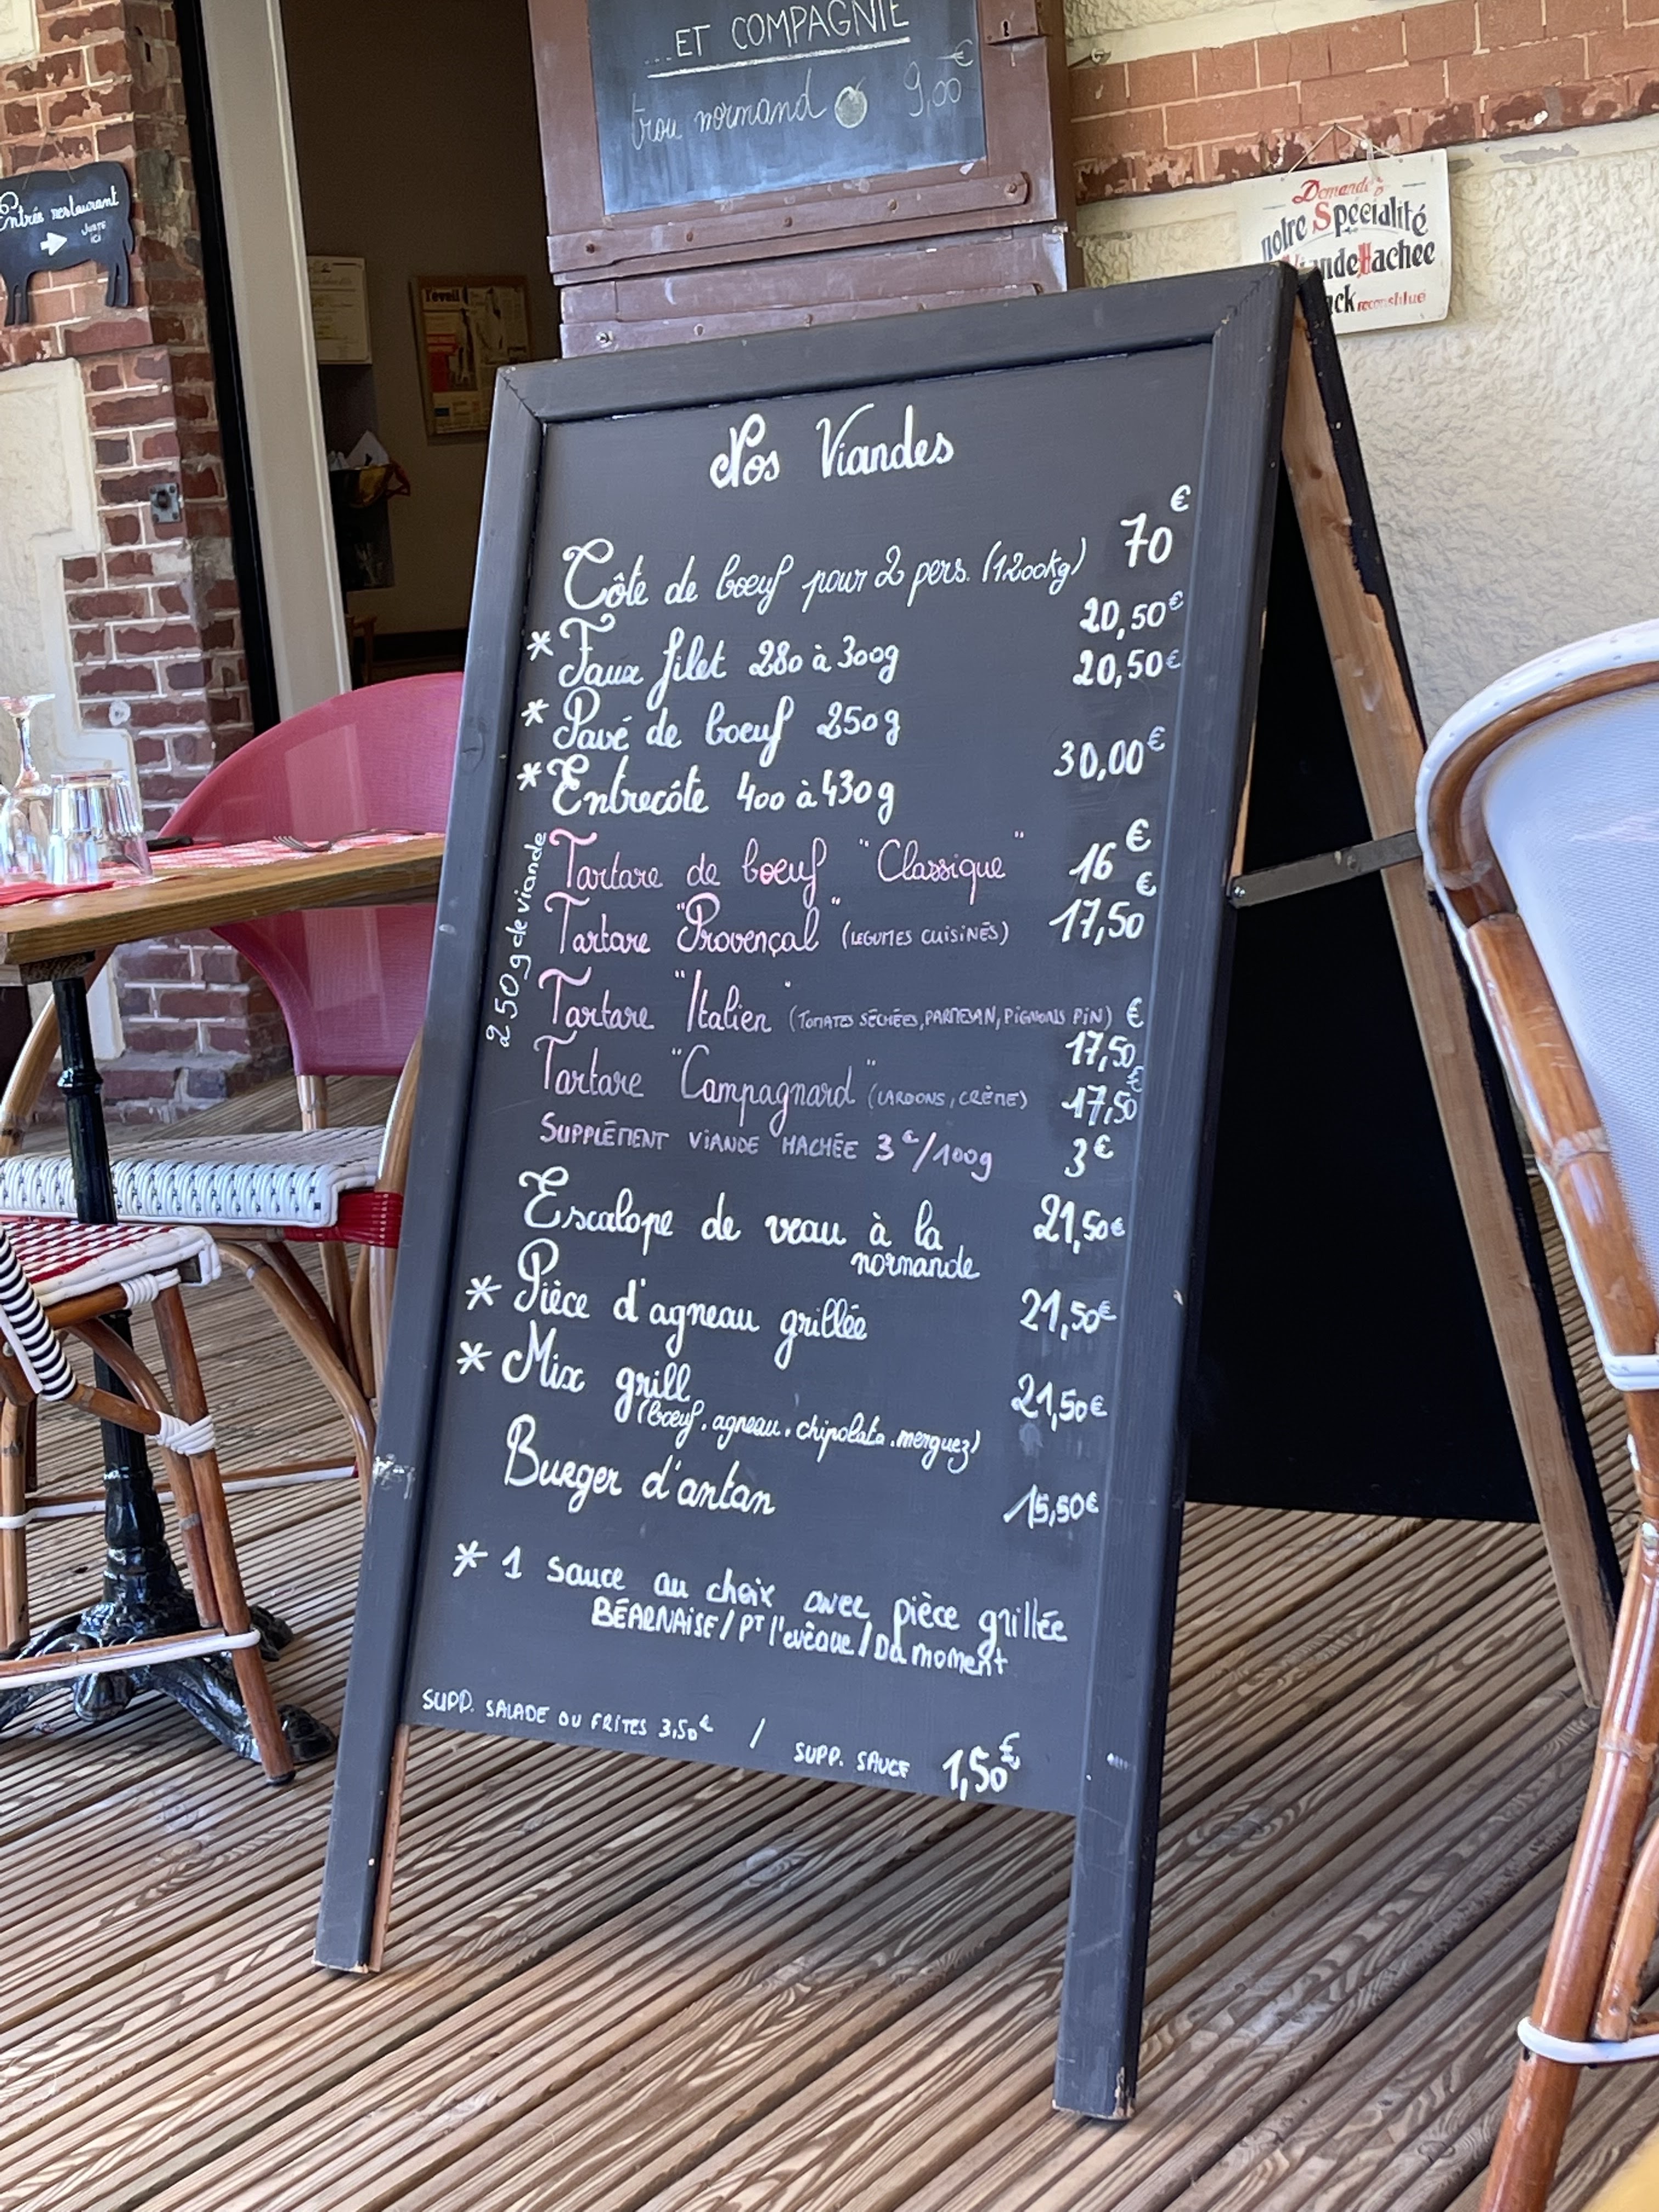 ...ET COMPAGNIE
trou normand 9,00€
Entrée restaurant
JUSTE
ICI
l'éveil
Demandez
notre Spécialité
Hachee
reconstitué
Nos Viandes
Côte de bœuf pour 2 pers. (1200kg) 70€
* Faux filet 280 à 300g 20,50€
* Pavé de boeuf 250g 20,50€
* Entrecôte 400 à 430g 30,00€
250g de viande
Tartare de bœuf "Classique" 16€
Tartare "Provençal" (LEGUMES CUISINÉS) 17,50€
Tartare "Italien" (TOMATES SÉCHÉES, PARMESAN, PIGNONS PIN) 17,50€
Tartare "Campagnard" (LARDONS, CRÈME) 17,50€
SUPPLÉMENT VIANDE HACHÉE 3€/100g 3€
Escalope de veau à la 21,50€
normande
* Pièce d'agneau grillée 21,50€
* Mix grill 21,50€
(bœuf. agneau. chipolata. merguez)
Burger d'antan 15,50€
* 1 sauce au choix avec pièce grillée
BÉARNAISE / PT l'evêque / Du moment
SUPP. SALADE OU FRITES 3,50€ / SUPP. SAUCE 1,50€